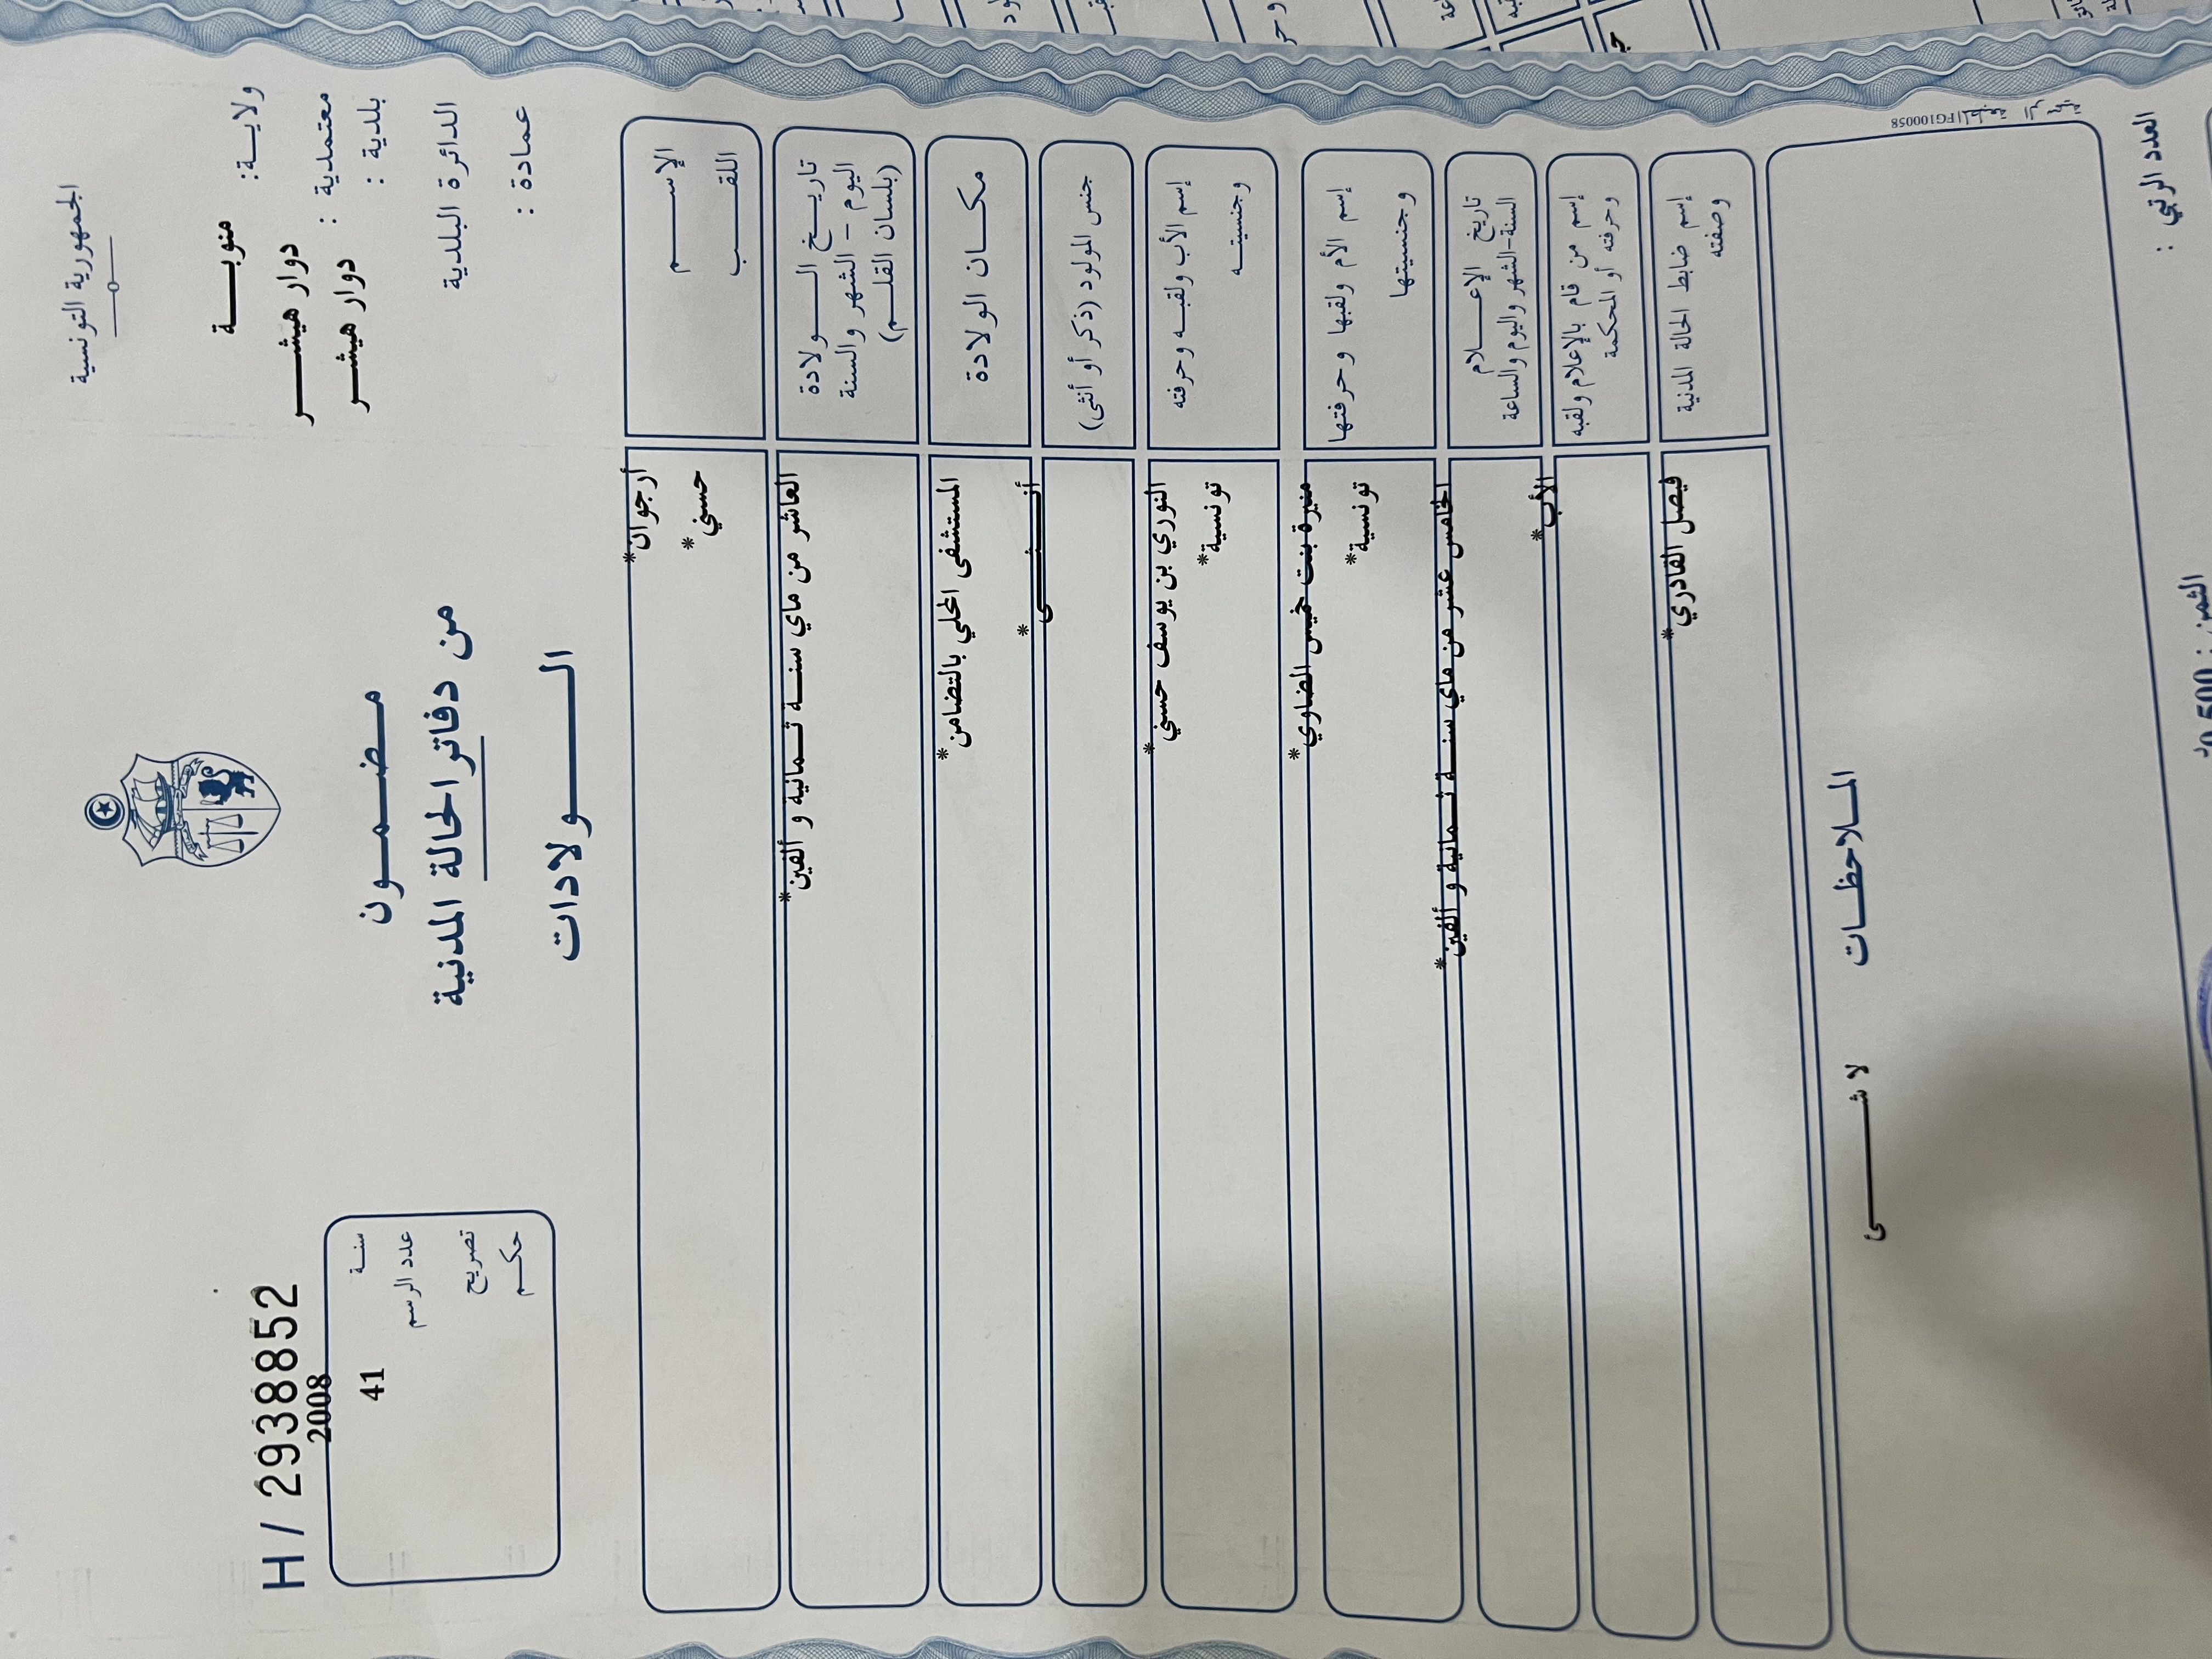 الجمهورية التونسية
ولاية: منوبة
معتمدية : دوار هيشر
بلدية : دوار هيشر
الدائرة البلدية
عمادة :
مضمون
من دفاتر الحالة المدنية
الولادات
H / 2938852
2008
سنة
41
عدد الرسم
تصريح
حكم
الإسم أرجوان*
اللقب حسني*
تاريخ الولادة العاشر من ماي سنة ثمانية و ألفين*
اليوم - الشهر والسنة
(بلسان القلم)
مكان الولادة المستشفى المحلي بالتضامن*
جنس المولود (ذكر أو أنثى) أنثى*
إسم الأب ولقبه وحرفته النوري بن يوسف حسني*
وجنسيته تونسية*
إسم الأم ولقبها وحرفتها منيرة بنت خميس الضاوي*
وجنسيتها تونسية*
تاريخ الإعلام الخامس عشر من ماي سنة ثمانية و ألفين*
السنة-الشهر واليوم والساعة
إسم من قام بالإعلام ولقبه الأب*
وحرفته أو المحكمة
إسم ضابط الحالة المدنية فيصل القادري*
وصفته
FG100058
الملاحظات
لا شئ
العدد الرتبي :
الثمن : 0,500 د